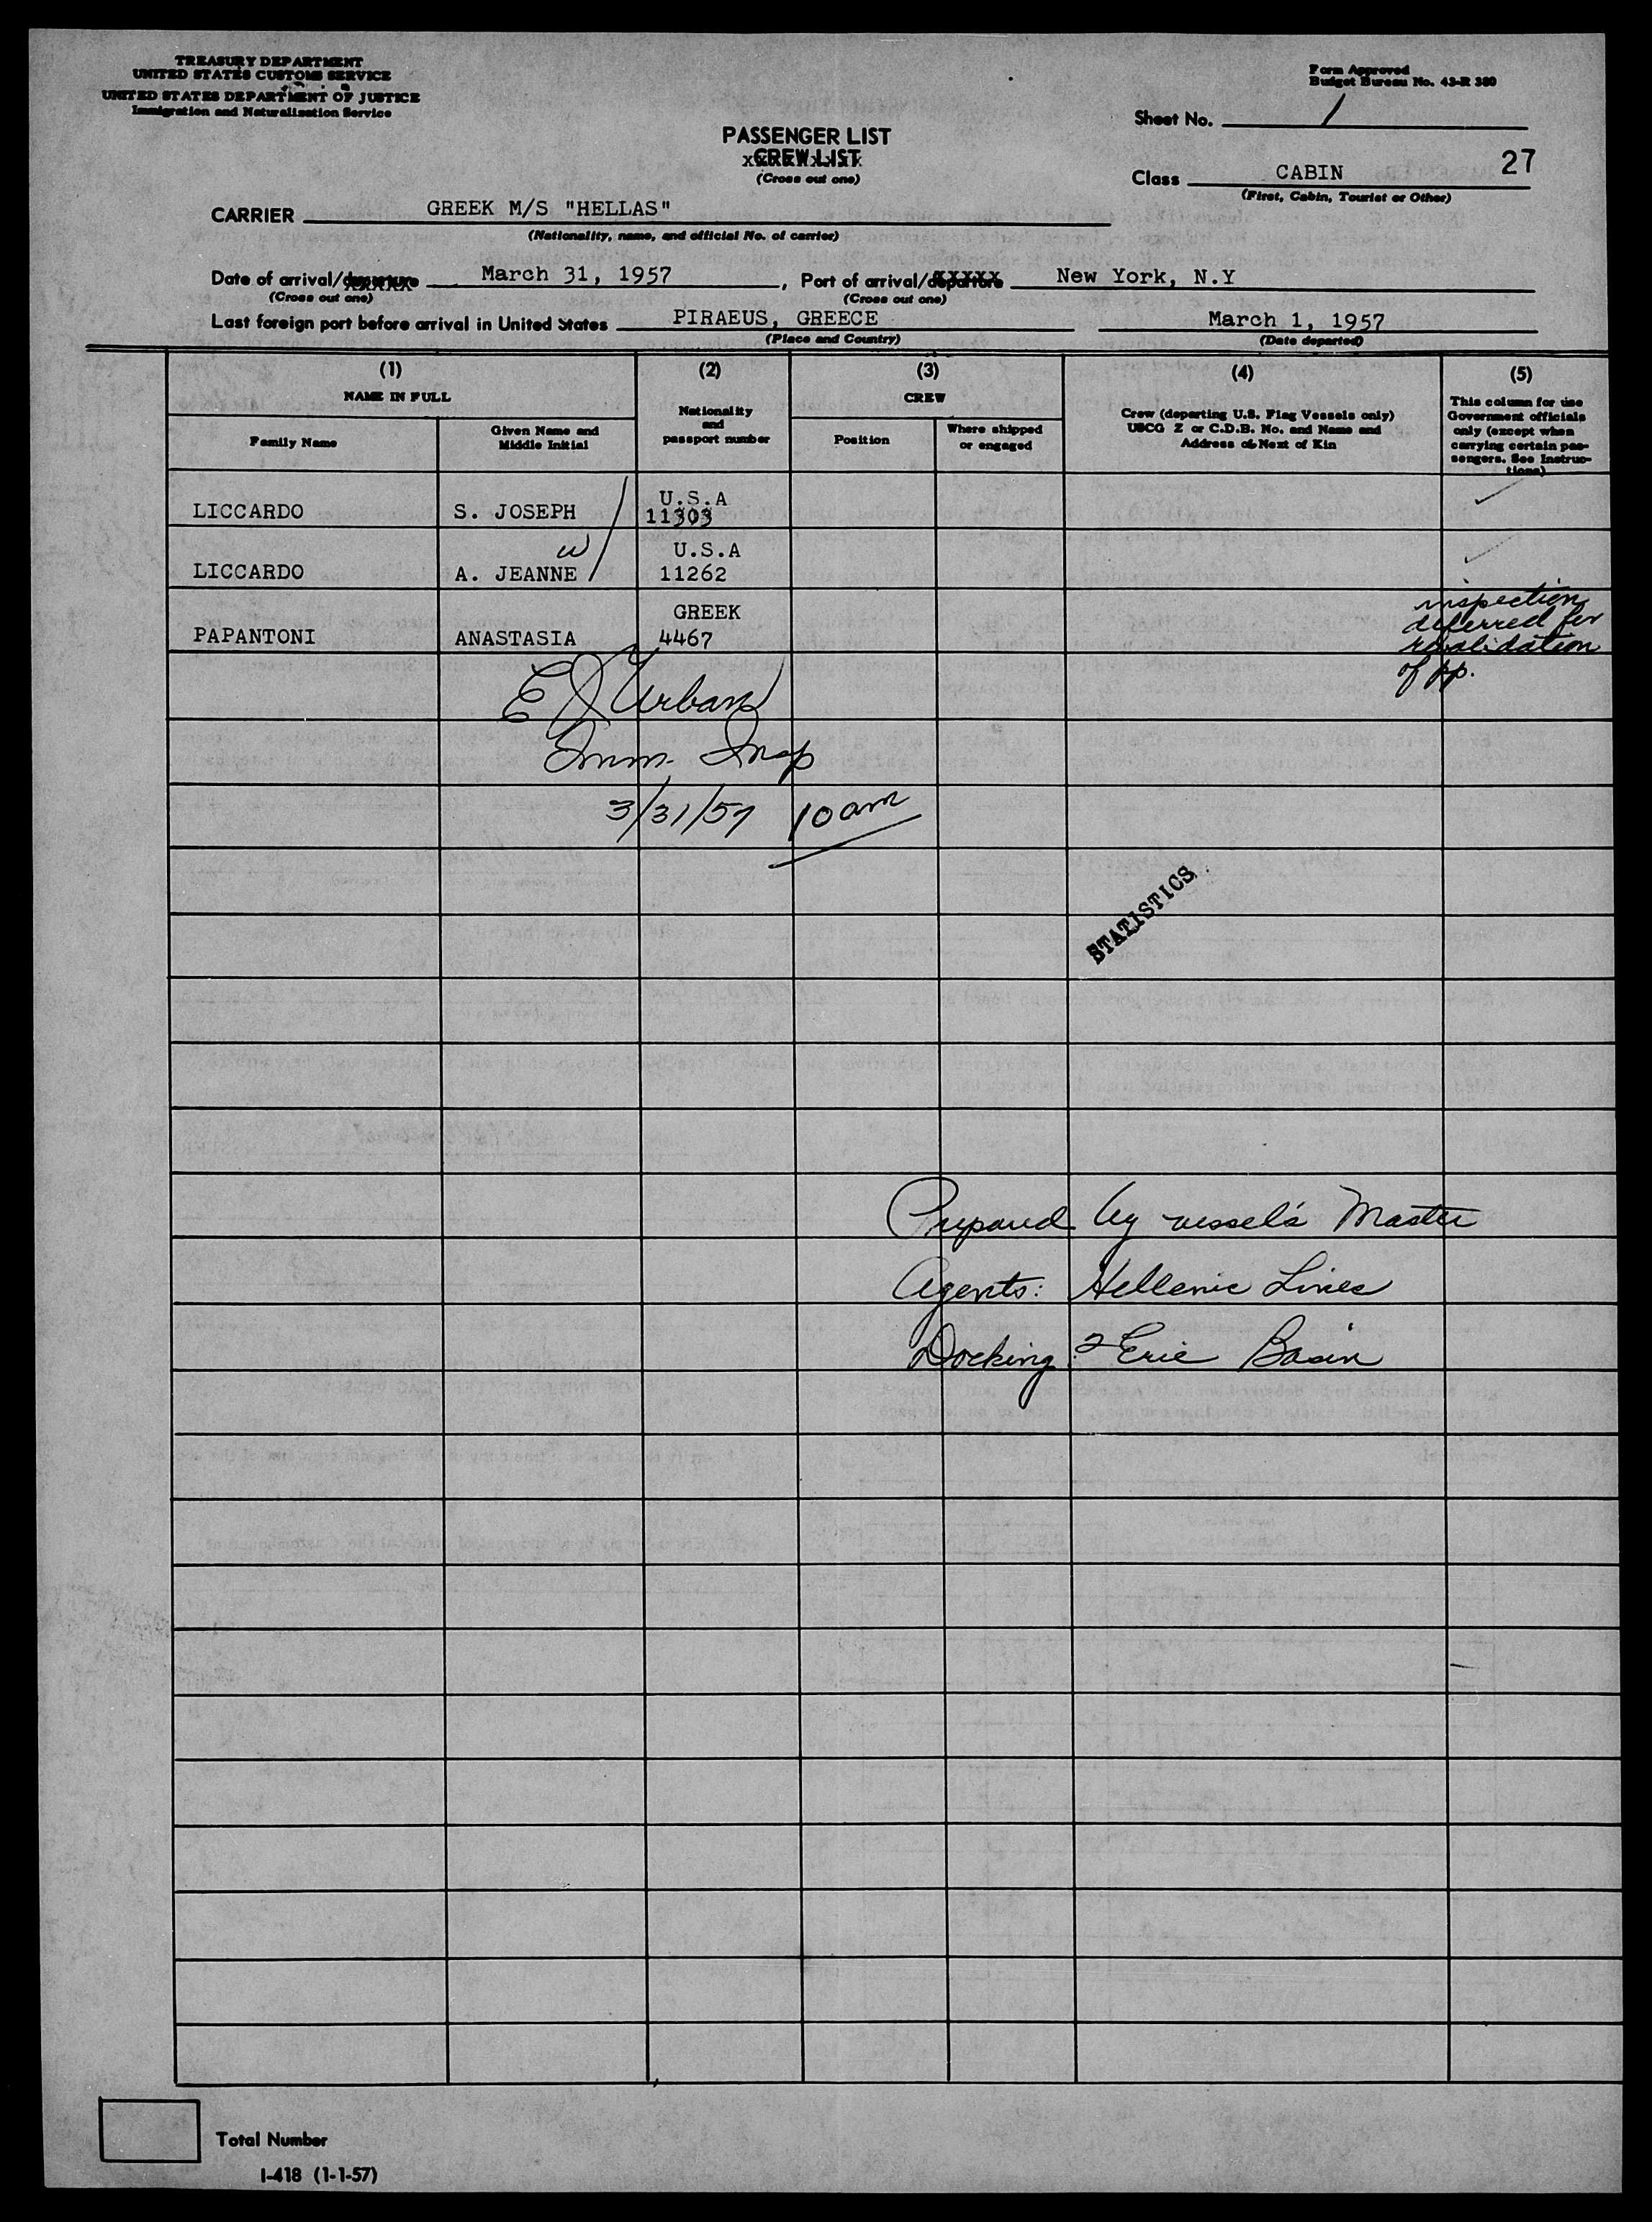 TREASURY DEPARTMENT
UNITED STATES CUSTOMS SERVICE
UNITED STATES DEPARTMENT OF JUSTICE
Immigration and Naturalization Service
Form Approved
Budget Bureau No. 43-R 380
Sheet No. 1
PASSENGER LIST
CREW LIST
(Cross out one)
27
Class CABIN
(First, Cabin, Tourist or Other)
CARRIER GREEK M/S "HELLAS"
(Nationality, name, and official No. of carrier)
Date of arrival/departure March 31, 1957, Port of arrival/departure New York, N.Y
(Cross out one) (Cross out one)
Last foreign port before arrival in United States PIRAEUS, GREECE March 1, 1957
(Place and Country) (Date departed)
(1) (2) (3) (4) (5)
NAME IN FULL
Family Name
Given Name and
Middle Initial
Nationality
and
passport number
CREW
Position
Where shipped
or engaged
Crew (departing U.S. Flag Vessels only)
USCG Z or C.D.B. No. and Name and
Address of Next of Kin
This column for use
Government officials
only (except when
carrying certain pas-
sengers. See Instruc-
tions)
U.S.A
LICCARDO S. JOSEPH 11303
w U.S.A
LICCARDO A. JEANNE 11262
GREEK
PAPANTONI ANASTASIA 4467
inspection
deferred for
revalidation
of pp.
E J Urban
Imm. Insp
3/31/57 10 am
STATISTICS
Prepared by vessel's Master
Agents: Hellenic Lines
Docking: 2 Erie Basin
Total Number
I-418 (1-1-57)